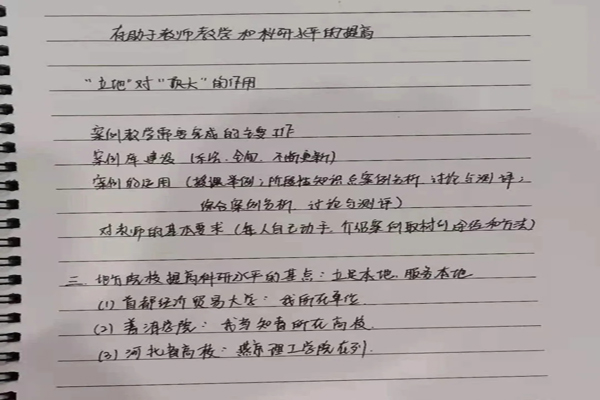 有助于教师教学和科研水平的提高
"立地"对"顶天"的作用
案例教学需要完成的主要工作
案例库建设（系统、全面、不断更新）
案例的运用（授课举例；阶段性知识点案例分析、讨论与测评；
综合案例分析、讨论与测评）
对教师的基本要求（每人自己动手，介绍案例取材的途径和方法）
三、地方院校提高科研水平的基点：立足本地、服务本地
(1) 首都经济贸易大学：我所在单位.
(2) 普洱学院：我当知青所在高校.
(3) 河北省高校：燕京理工学院在列.